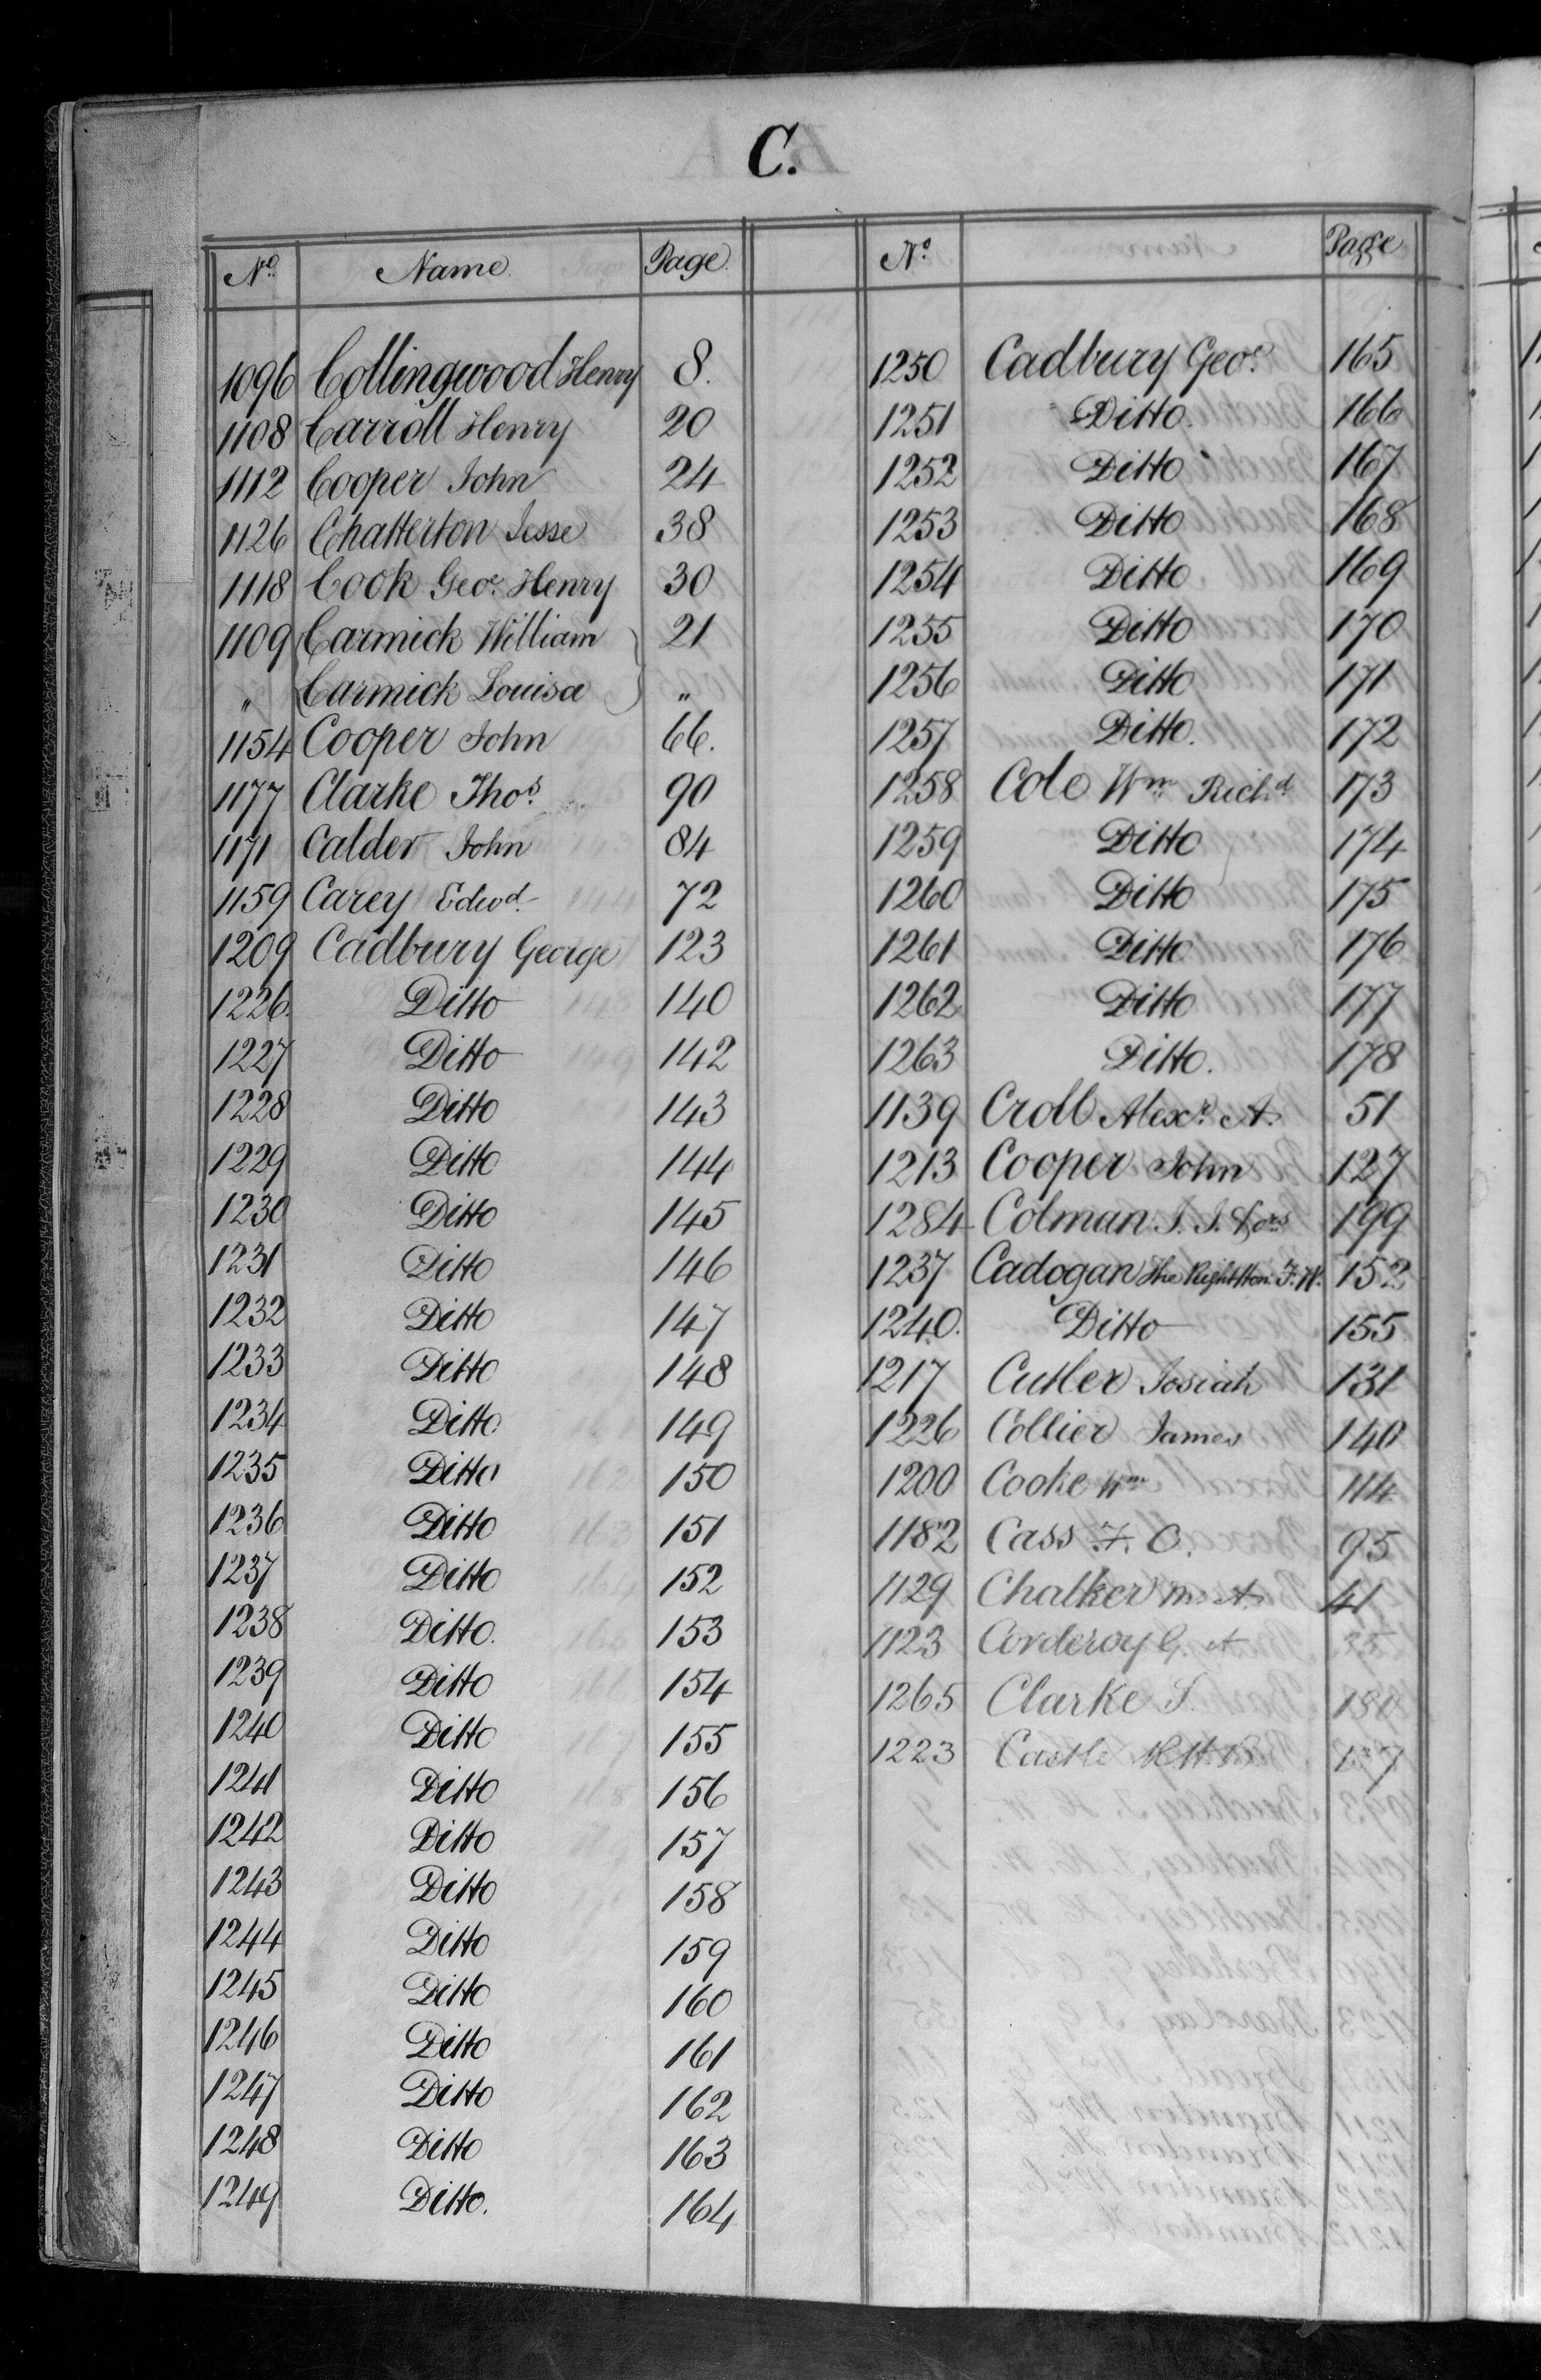 C.
No. Name. Page.
1096 Collingwood Henry 8.
1108 Carroll Henry 20
1112 Cooper John 24
1126 Chatterton Jesse 38
1118 Cook Geo. Henry 30
1109 Carmick William 21
" Carmick Louisa "
1154 Cooper John 66.
1177 Clarke Thos. 90
1171 Calder John 84
1159 Carey Edwd. 72
1209 Cadbury George 123
1226. Ditto 140
1227 Ditto 142
1228 Ditto 143
1229 Ditto 144
1230 Ditto 145
1231 Ditto 146
1232 Ditto 147
1233 Ditto 148
1234 Ditto 149
1235 Ditto 150
1236 Ditto 151
1237 Ditto 152
1238 Ditto. 153
1239 Ditto 154
1240 Ditto 155
1241 Ditto 156
1242 Ditto 157
1243 Ditto 158
1244 Ditto 159
1245 Ditto 160
1246 Ditto 161
1247 Ditto 162
1248 Ditto 163
1249 Ditto. 164
No. Page
1250 Cadbury Geo. 165
1251 Ditto. 166
1252 Ditto 167
1253 Ditto 168
1254 Ditto 169
1255 Ditto 170
1256 Ditto 171
1257 Ditto. 172
1258 Cole Wm. Richd. 173
1259 Ditto 174
1260 Ditto 175
1261 Ditto 176
1262 Ditto 177
1263 Ditto. 178
1139 Croll Alexr. A. 51
1213 Cooper John 127
1284 Colman J. J. 199
1237 Cadogan The Right Hon. F. W. 152
1240. Ditto 155
1217 Cutler Josiah 131
1226 Collier James 140
1200 Cooke Wm 114
1182 Cass F. C. 95
1129 Chalker A 41
1123 Corderoy G. A 35
1265 Clarke 180
1223 Castle 137